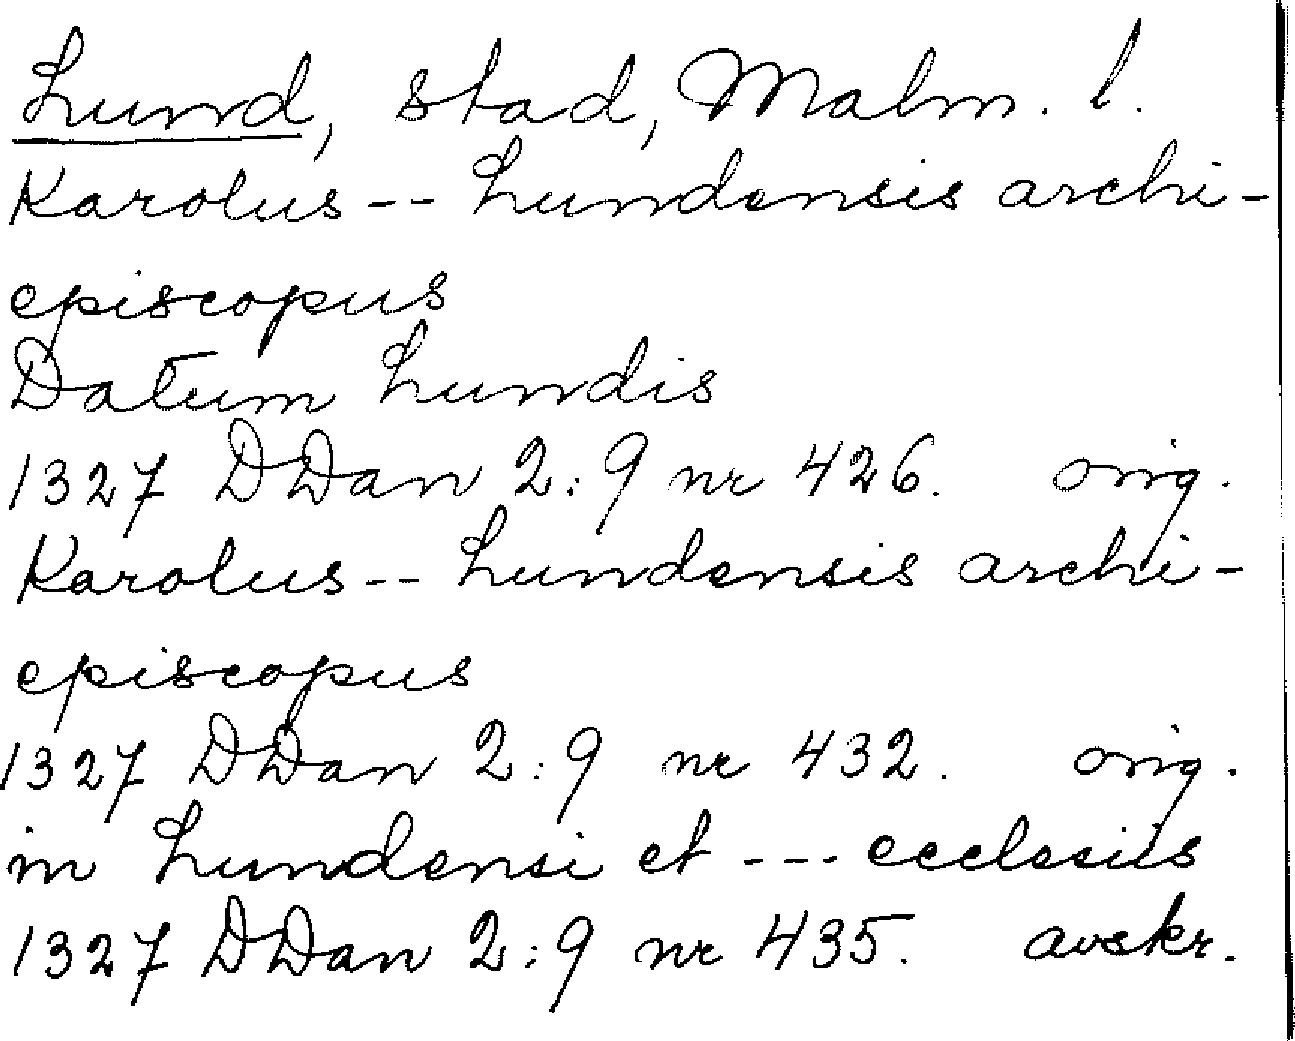 Lund, stad, Malm. l.
Karolus -- Lundensis archi-
episcopus
Datum Lundis
1327 DDan 2:9 nr 426. orig.
Karolus -- Lundensis archi-
episcopus
1327 DDan 2:9 nr 432. orig.
in Lundensi et --- ecclesiis
1327 DDan 2:9 nr 435. avskr.